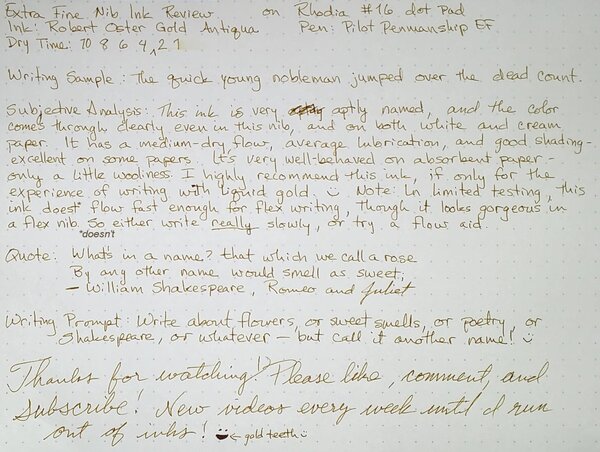 Extra Fine Nib Ink Review on Rhodia #16 dot pad
Ink: Robert Oster Gold Antiqua Pen: Pilot Penmanship EF
Dry Time: 10 8 6 4, 2 1
Writing Sample: The quick young nobleman jumped over the dead count.
Subjective Analysis: This ink is very aptly named, and the color
comes through clearly even in this nib, and on both white and cream
paper. It has a medium-dry flow, average lubrication, and good shading -
excellent on some papers. It's very well-behaved on absorbent paper -
only a little wooliness. I highly recommend this ink, if only for the
experience of writing with liquid gold. :) Note: In limited testing, this
ink does* flow fast enough for flex writing, though it looks gorgeous in
a flex nib. So either write really slowly, or try a flow aid.
*doesn't
Quote: What's in a name? that which we call a rose
By any other name would smell as sweet;
- William Shakespeare, Romeo and Juliet
Writing Prompt: Write about flowers, or sweet smells, or poetry, or
Shakespeare, or whatever - but call it another name! :)
Thanks for watching! Please like, comment, and
Subscribe! New videos every week until I run
out of inks! ← gold teeth :)